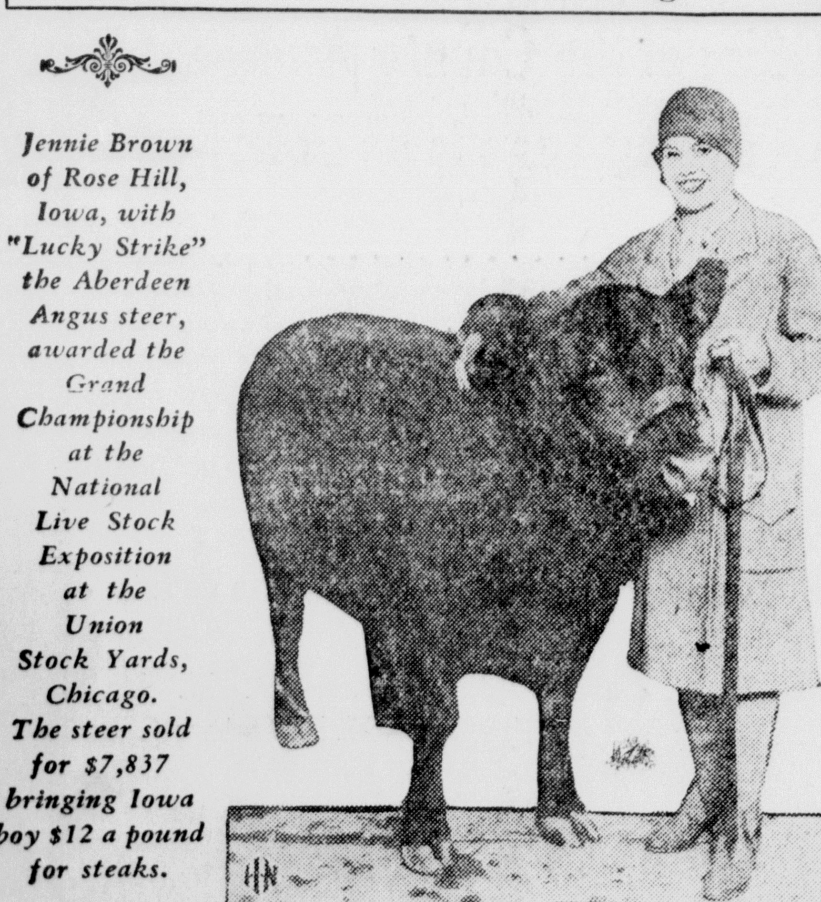 Jennie Brown
of Rose Hill,
Iowa, with
"Lucky Strike"
the Aberdeen
Angus steer,
awarded the
Grand
Championship
at the
National
Live Stock
Exposition
at the
Union
Stock Yards,
Chicago.
The steer sold
for $7,837
bringing Iowa
boy $12 a pound
for steaks.